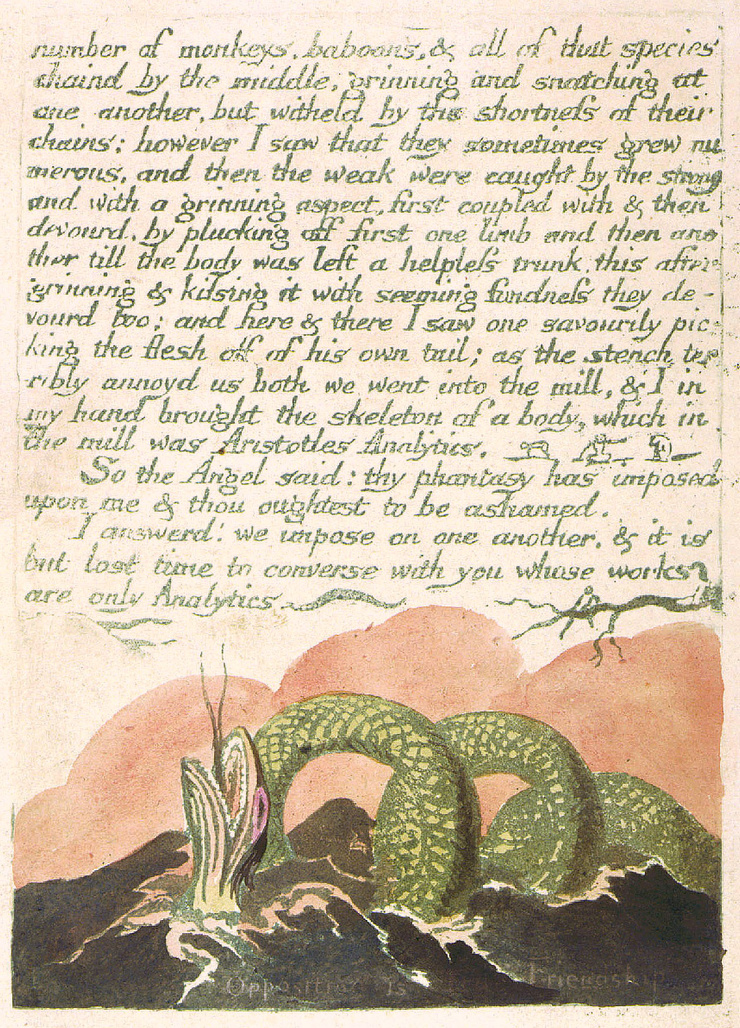 number of monkeys, baboons, & all of that species
chaind by the middle, grinning and snatching at
one another, but witheld by the shortneſs of their
chains: however I saw that they sometimes grew nu
merous, and then the weak were caught by the strong
and with a grinning aspect, first coupled with & then
devourd, by plucking off first one limb and then ano
ther till the body was left a helpleſs trunk. this after
grinning & kiſsing it with seeming fondneſs they de-
vourd too; and here & there I saw one savourily pic-
king the flesh off of his own tail; as the stench ter
ribly annoyd us both we went into the mill, & I in
my hand brought the skeleton of a body, which in
the mill was Aristotles Analytics.
So the Angel said: thy phantasy has imposed
upon me & thou oughtest to be ashamed.
I answerd: we impose on one another, & it is
but lost time to converse with you whose works
are only Analytics
Opposition is Friendship